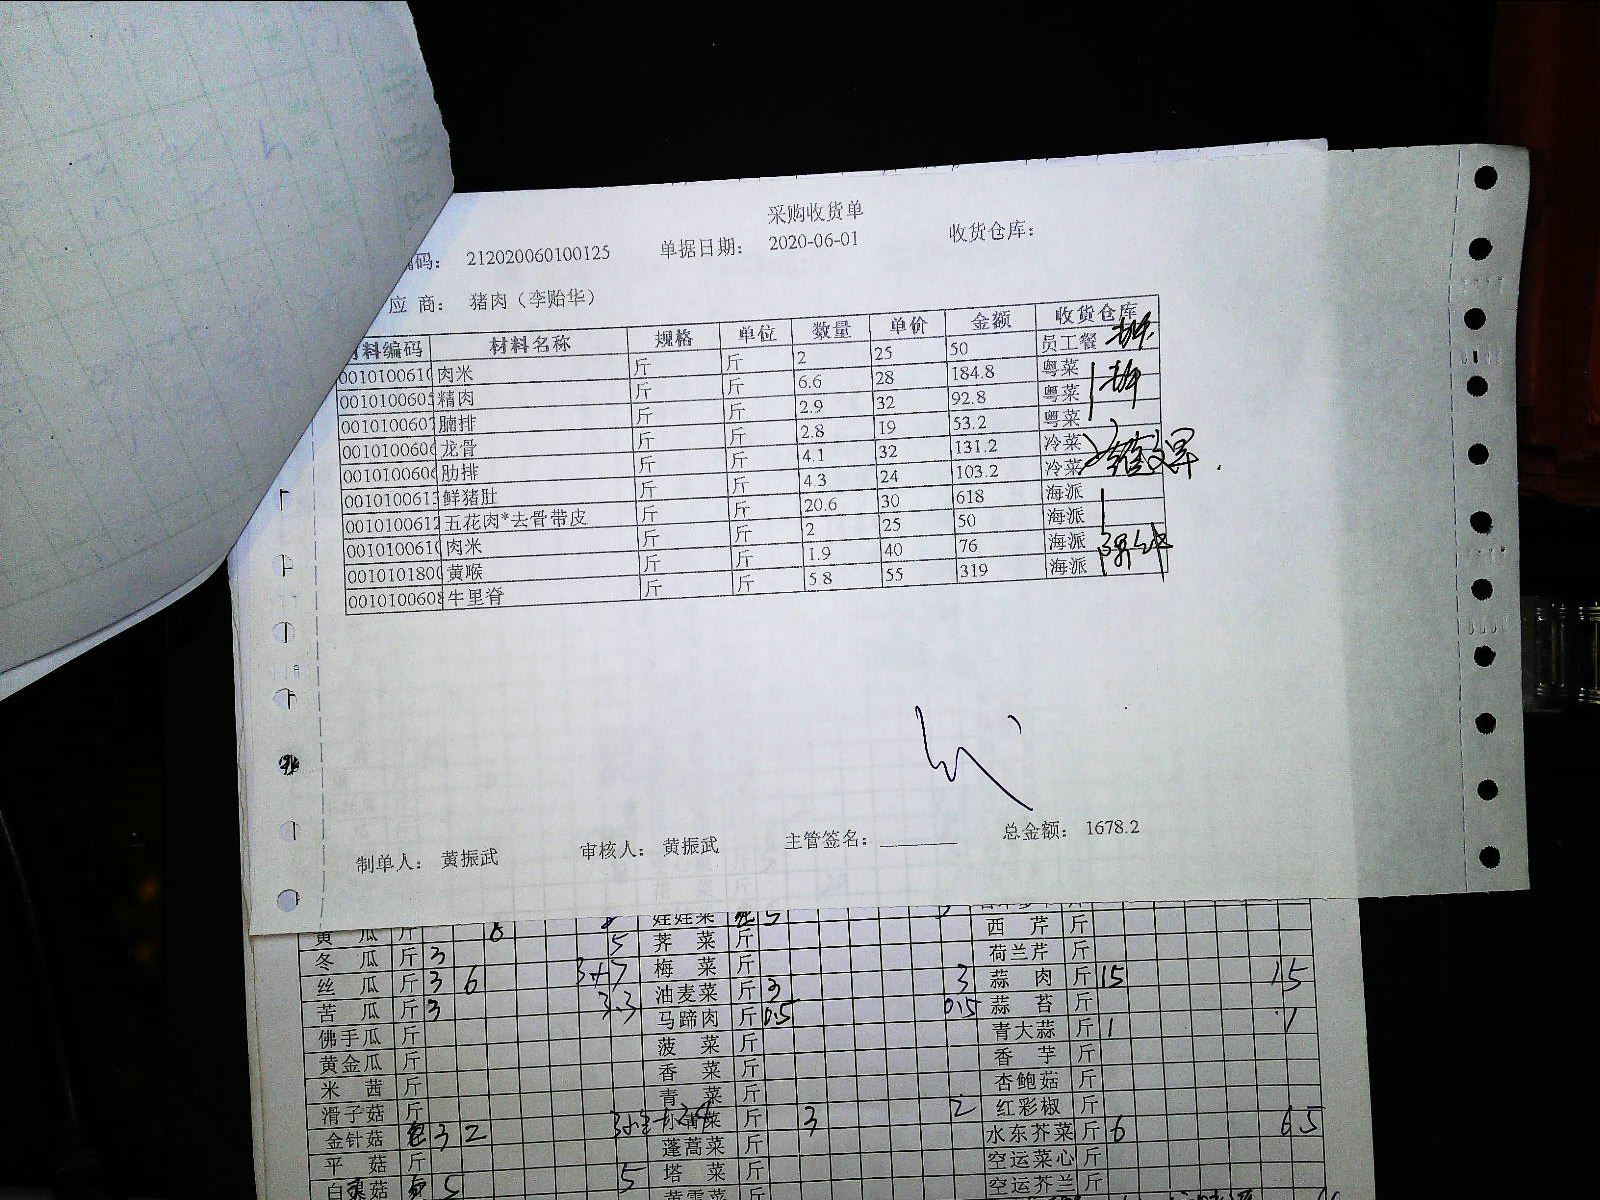 采购收货单
编码： 212020060100125 单据日期： 2020-06-01 收货仓库：
应 商： 猪肉（李贻华）
材料编码 材料名称 规格 单位 数量 单价 金额 收货仓库
001010061 肉米 斤 斤 2 25 50 员工餐
001010060 精肉 斤 斤 6.6 28 184.8 粤菜
001010060 腩排 斤 斤 2.9 32 92.8 粤菜
001010060 龙骨 斤 斤 2.8 19 53.2 粤菜
001010060 肋排 斤 斤 4.1 32 131.2 冷菜
001010061 鲜猪肚 斤 斤 4.3 24 103.2 冷菜
001010061 五花肉*去骨带皮 斤 斤 20.6 30 618 海派
001010061 肉米 斤 斤 2 25 50 海派
001010180 黄喉 斤 斤 1.9 40 76 海派
001010060 牛里脊 斤 斤 5.8 55 319 海派
制单人： 黄振武 审核人： 黄振武 主管签名： 总金额： 1678.2
黄 瓜 斤 8 娃娃菜 5 西 芹 斤
冬 瓜 斤 3 5 荠 菜 斤 荷兰芹 斤
丝 瓜 斤 3 6 3+7 梅 菜 斤 蒜 肉 斤 15 15
苦 瓜 斤 3 3.3 油麦菜 斤 3 3 蒜 苔 斤
佛手瓜 斤 马蹄肉 斤 0.5 0.5 青大蒜 斤 1 1
黄金瓜 斤 菠 菜 斤 香 芋 斤
米 茜 斤 香 菜 斤 杏鲍菇 斤
滑子菇 斤 青 菜 斤 红彩椒 斤
金针菇 包 3 2 菜 斤 3 2 水东芥菜 斤 6 6.5
平 菇 斤 蓬蒿菜 斤 空运菜心 斤
白 菇 5 5 塔 菜 斤 空运芥兰 斤